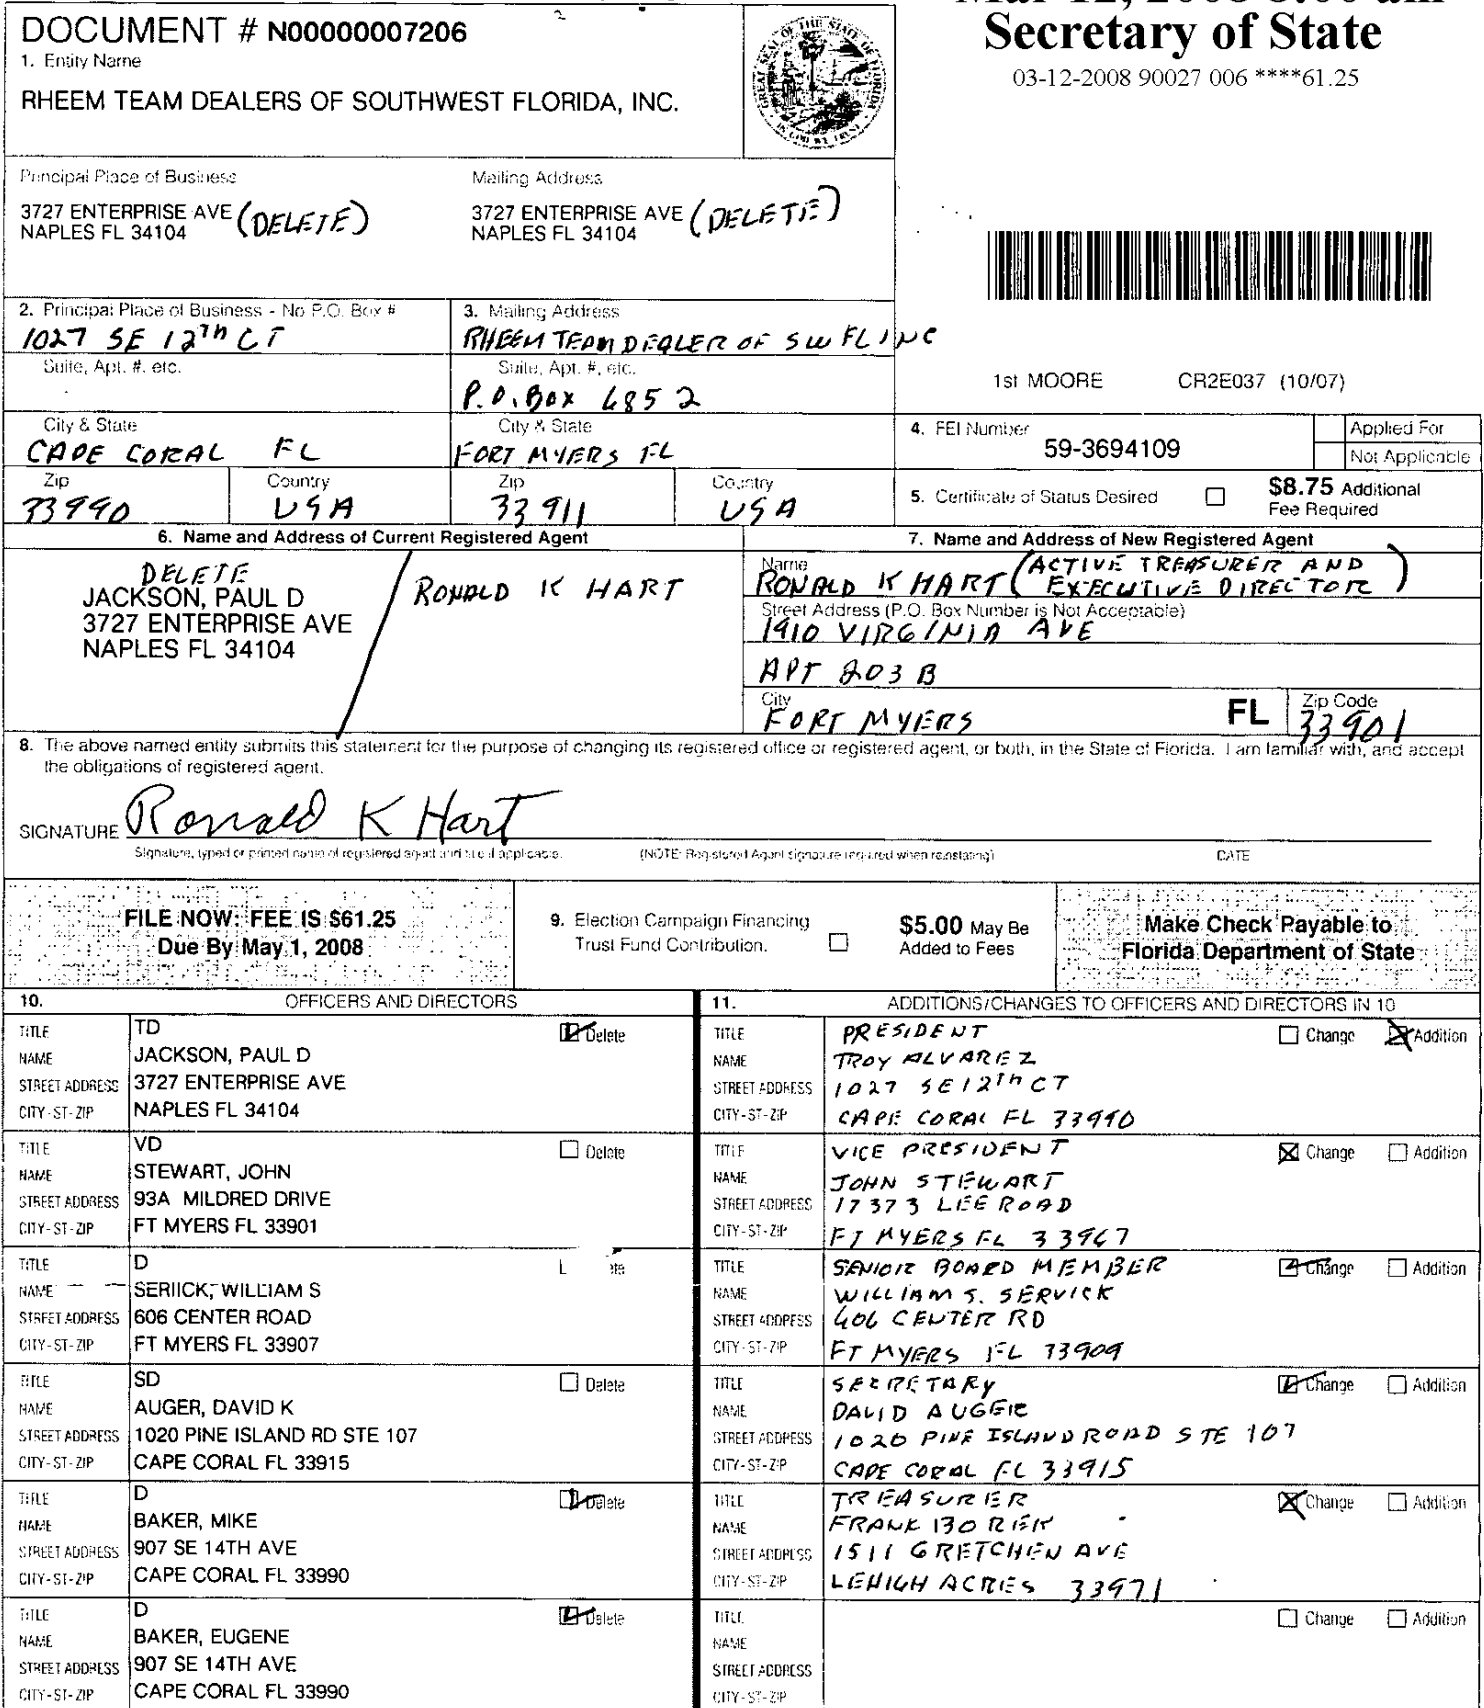 DOCUMENT # N00000007206
1. Entity Name
RHEEM TEAM DEALERS OF SOUTHWEST FLORIDA, INC.
Secretary of State
03-12-2008 90027 006 ****61.25
Principal Place of Business
3727 ENTERPRISE AVE (DELETE)
NAPLES FL 34104
Mailing Address
3727 ENTERPRISE AVE (DELETE)
NAPLES FL 34104
2. Principal Place of Business - No P.O. Box #
1027 SE 12Th CT
Suite, Apt. #, etc.
City & State
CAPE CORAL FL
Zip
33990
Country
USA
3. Mailing Address
RHEEM TEAM DEALER OF SW FL INC
Suite, Apt. #, etc.
P.O. Box 6852
City & State
FORT MYERS FL
Zip
33911
Country
USA
1st MOORE CR2E037 (10/07)
4. FEI Number
59-3694109
Applied For
Not Applicable
5. Certificate of Status Desired
$8.75 Additional
Fee Required
6. Name and Address of Current Registered Agent
DELETE
JACKSON, PAUL D
3727 ENTERPRISE AVE
NAPLES FL 34104
RONALD K HART
7. Name and Address of New Registered Agent
Name
RONALD K HART (ACTIVE TREASURER AND
EXECUTIVE DIRECTOR)
Street Address (P.O. Box Number is Not Acceptable)
1910 VIRGINIA AVE
APT 203 B
City
FORT MYERS
FL
Zip Code
33901
8. The above named entity submits this statement for the purpose of changing its registered office or registered agent, or both, in the State of Florida. I am familiar with, and accept
the obligations of registered agent.
SIGNATURE Ronald K Hart
Signature, typed or printed name of registered agent and title if applicable.
(NOTE: Registered Agent signature required when reinstating)
DATE
FILE NOW: FEE IS $61.25
Due By May 1, 2008
9. Election Campaign Financing
Trust Fund Contribution.
$5.00 May Be
Added to Fees
Make Check Payable to
Florida Department of State
10. OFFICERS AND DIRECTORS
TITLE TD Delete
NAME JACKSON, PAUL D
STREET ADDRESS 3727 ENTERPRISE AVE
CITY-ST-ZIP NAPLES FL 34104
TITLE VD Delete
NAME STEWART, JOHN
STREET ADDRESS 93A MILDRED DRIVE
CITY-ST-ZIP FT MYERS FL 33901
TITLE D
NAME SERIICK, WILLIAM S
STREET ADDRESS 606 CENTER ROAD
CITY-ST-ZIP FT MYERS FL 33907
TITLE SD Delete
NAME AUGER, DAVID K
STREET ADDRESS 1020 PINE ISLAND RD STE 107
CITY-ST-ZIP CAPE CORAL FL 33915
TITLE D Delete
NAME BAKER, MIKE
STREET ADDRESS 907 SE 14TH AVE
CITY-ST-ZIP CAPE CORAL FL 33990
TITLE D Delete
NAME BAKER, EUGENE
STREET ADDRESS 907 SE 14TH AVE
CITY-ST-ZIP CAPE CORAL FL 33990
11. ADDITIONS/CHANGES TO OFFICERS AND DIRECTORS IN 10
TITLE PRESIDENT Change Addition
NAME TROY ALVAREZ
STREET ADDRESS 1027 SE 12Th CT
CITY-ST-ZIP CAPE CORAL FL 33990
TITLE VICE PRESIDENT Change Addition
NAME JOHN STEWART
STREET ADDRESS 17373 LEE ROAD
CITY-ST-ZIP FT MYERS FL 33967
TITLE SENIOR BOARD MEMBER Change Addition
NAME WILLIAM S. SERVICK
STREET ADDRESS 606 CENTER RD
CITY-ST-ZIP FT MYERS FL 33909
TITLE SECRETARY Change Addition
NAME DAVID AUGER
STREET ADDRESS 1020 PINE ISLAND ROAD STE 107
CITY-ST-ZIP CAPE CORAL FL 33915
TITLE TREASURER Change Addition
NAME FRANK BORER
STREET ADDRESS 1511 GRETCHEN AVE
CITY-ST-ZIP LEHIGH ACRES 33971
TITLE Change Addition
NAME
STREET ADDRESS
CITY-ST-ZIP